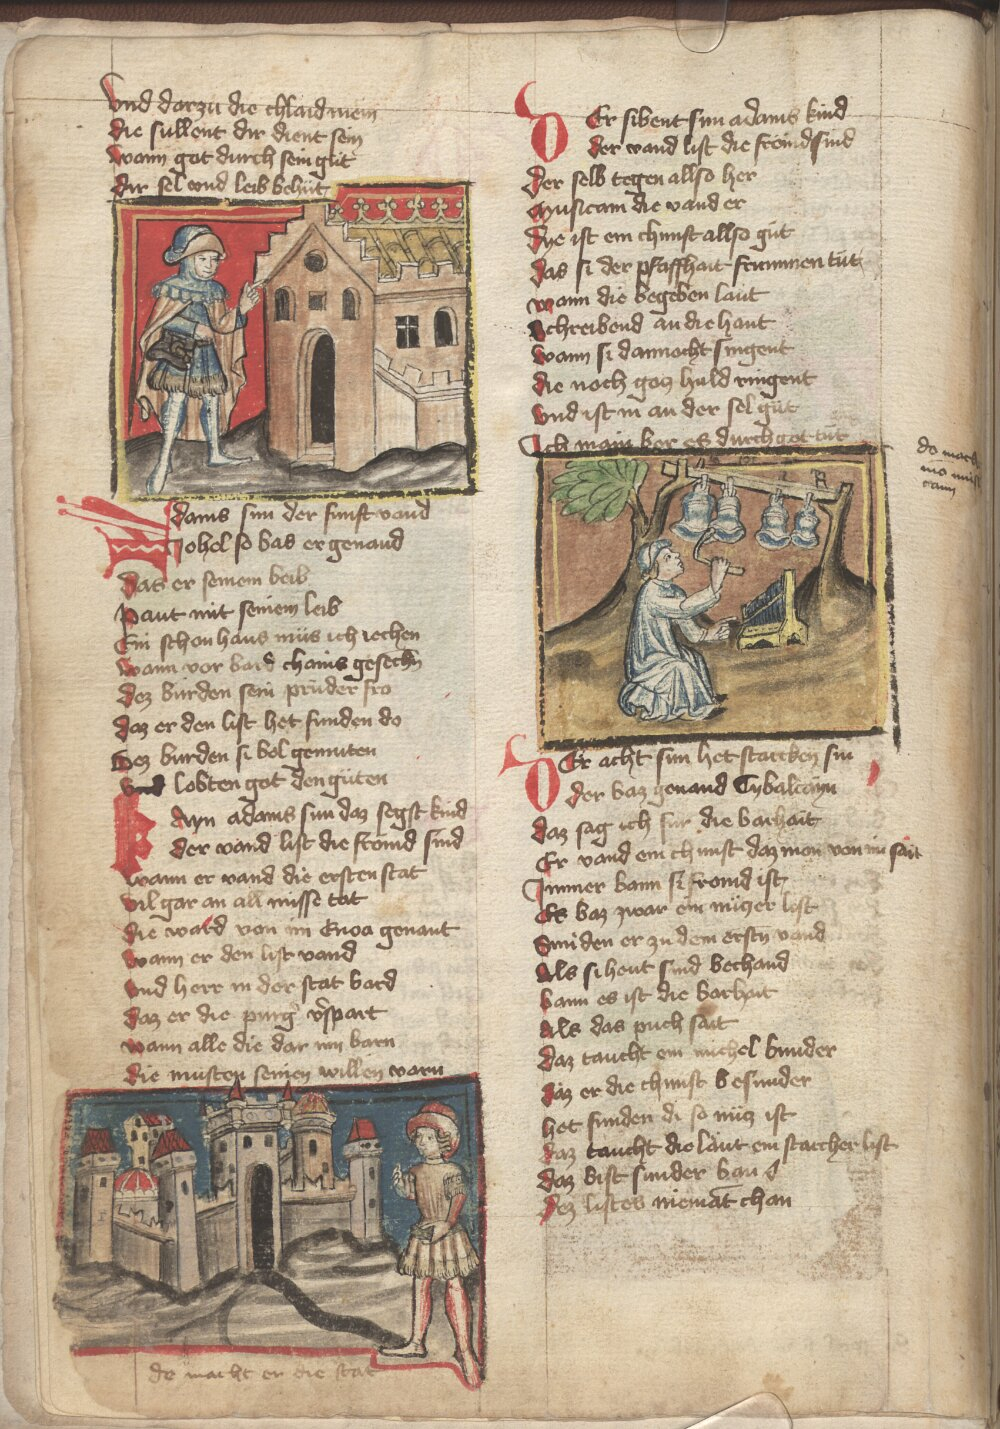 Vnd darzu die chlaid mein
die sullent dir dient sein
wann got durch sein güt
dir sel vnd leib behüt
Adams sun der funft vand
Johel so bas er genand
Das er seinem beib
Paut mit seinem leib
Ein schon haus müs ich iechen
wann vor bard chains gesechn
dez burden sein prüder fro
daz er den list het funden do
dez burden si bol gemuten
vnd lobten got den güten
Kayn adams sun daz segst kind
der vand list die fromd sind
wann er vand die ersten stat
vil gar an all misse tat
die ward von im Enoa genant
wann er den list vand
vnd herr in der stat bard
daz er die purg v̄spart
wann alle die dar inn barn
die musten seinen willen varn
do macht er die stat
Der sibent sun adams kind
der vand list die fromd sind
Der selb tegen allso her
Musicam die vand er
Dye ist ein chunst allso güt
das si der pfaffhait frummen tüt
wann die begeben laut
Schreibend an die haut
wann si dannocht singent
die noch gotz huld ringent
vnd ist in an der sel güt
Ich main ber es durch got tüt
do macht
Der acht sun het starcken sin
der baz genand Tybalcayn
daz sag ich für die barhait
Er vand ein chunst daz man von im sait
Immer bann si fromd ist
Es baz zwar ein nüczer list
Smiden er zu dem erstn vand
Als si heut sind bechand
bann es ist die barhait
Als das puch sait
daz taucht ein michel bunder
daz er die chunst besunder
het funden di so nücz ist
daz taucht die läut ein starcher list
daz bist sunder ban
dez listes niemāt chan